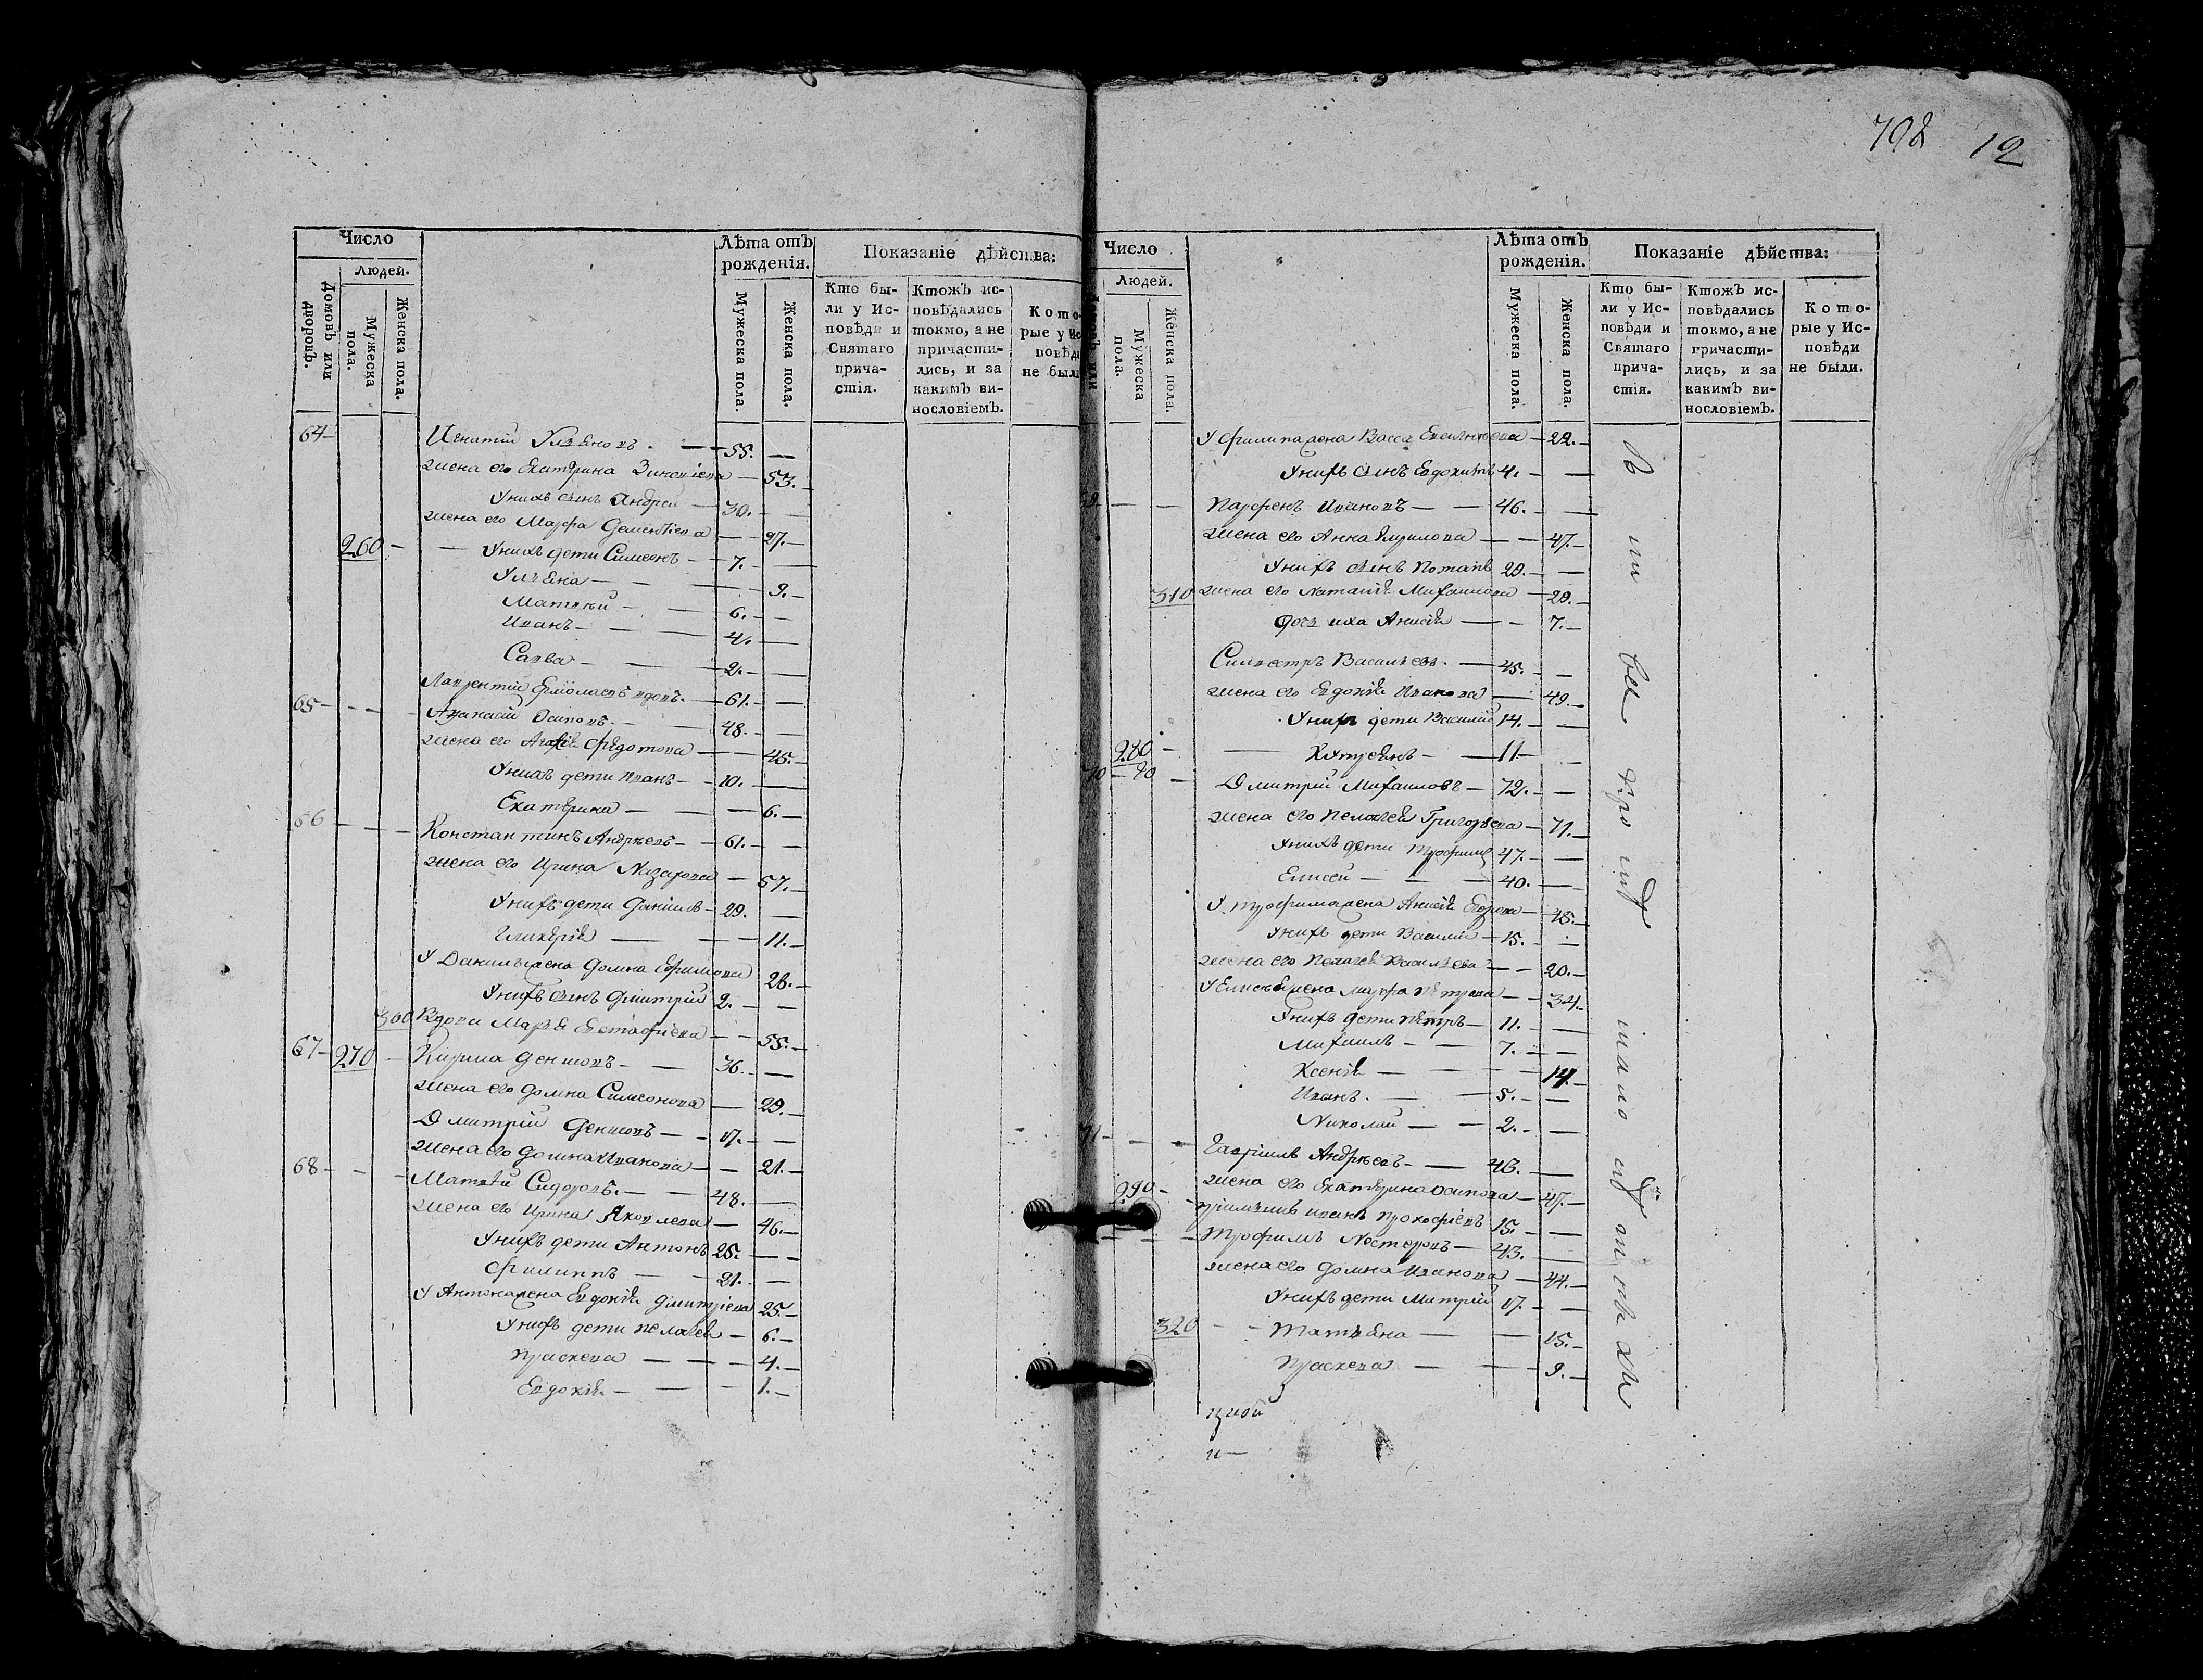 798 12
Число
Людей.
Домовъ или дворовъ.
Мужеска пола.
Женска пола.
Лѣта отъ рожденія.
Мужеска пола.
Женска пола.
Показаніе дѣйства:
Кто бы-
ли у Ис-
повѣди и
Святаго
прича-
стія.
Ктожъ ис-
повѣдались
токмо, а не
причасти-
лись, и за
какимъ ви-
нословіемъ.
Кото-
рые у Ис
повѣди
не были
64 Игнатій Ульяновъ 55.
жена его Екатерина Зиновіева 53.
У нихъ сынъ Андрей 30.
жена его Марфа Дементіева 27.
260 У нихъ дети Симеонъ 7.
Ульяна 9.
Матвѣй 6.
Иванъ 4.
Савва 2.
Лаврентій Ермолаевъ вдовъ 61.
65 Афанасій Осиповъ 48.
жена его Агафія Федотова 45.
У нихъ дети Иванъ 10.
Екатерина 6.
66 Константинъ Андреевъ 61.
жена его Ирина Назарова 57.
У нихъ дети Даніилъ 29.
Гликерія 11.
У Данилы жена Домна Ефимова 28.
У нихъ сынъ Дмитрій 2.
300 Вдова Марья Евстафіева 55.
67 270 Кирила Денисовъ 36.
жена его Домна Симеонова 29.
Дмитрій Денисовъ 17.
жена его Домна Иванова 21.
68 Матвѣй Сидоровъ 48.
жена его Ирина Яковлева 46.
У нихъ дети Антонъ 25.
Филиппъ 21.
У Антона жена Евдокія Дмитріева 25.
У нихъ дети Пелагея 6.
Праскева 4.
Евдокія 1.
Число
Людей.
Мужеска пола.
Женска пола.
Лѣта отъ рожденія.
Мужеска пола.
Женска пола.
Показаніе дѣйства:
Кто бы-
ли у Ис-
повѣди и
Святаго
прича-
стія.
Ктожъ ис-
повѣдались
токмо, а не
причасти-
лись, и за
какимъ ви-
нословіемъ.
Кото-
рые у Ис-
повѣди
не были.
У Филипа жена Васса 22.
У нихъ сынъ Евдокимъ 4.
Парфенъ Ивановъ 46.
жена его Анна Кирилова 47.
У нихъ сынъ Потапъ 29.
310 жена его Наталія Михаилова 29.
дочь ихъ Анисія 7.
Силвестръ Васильевъ 45.
жена его Евдокія Иванова 49.
У нихъ дети Василій 14.
280 Купреянъ 11
Дмитрій Михаиловъ 72.
жена его Пелагея Григорьева 71.
У нихъ дети Трофимъ 47.
Елисей 40.
У Трофима жена Анисія Егорова 48.
У нихъ дети Василій 15.
жена его Пелагея Васильева 20.
У Елисея жена Марфа Петрова 34.
У нихъ дети Петръ 11.
Михаилъ 7.
Ксенія 14.
Иванъ 5.
Николай 2.
71 Гавріилъ Андреевъ 43.
жена его Екатерина Осипова 47.
290 Иванъ Прокофіевъ 15.
Трофимъ Нестеровъ 43.
жена его Домна Иванова 44.
У нихъ дети Митрій 17.
320 Татьяна 15.
Праскева 9.